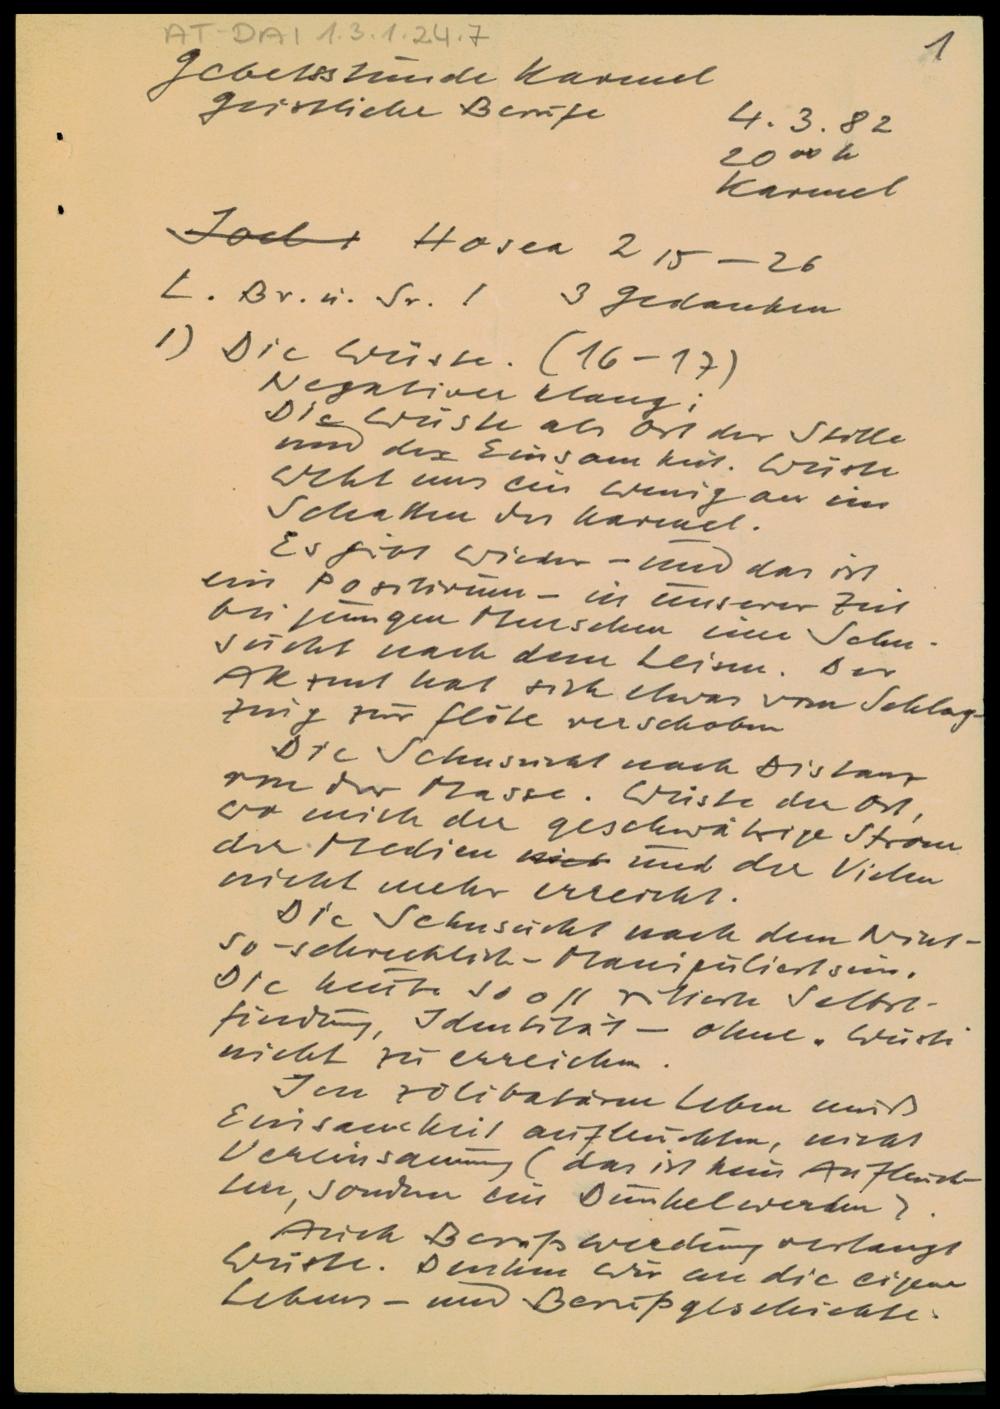 AT-DAI 1.3.1.24.7
1
Gebetsstunde Karmel
Geistliche Berufe
4.3.82
20 00 h
Karmel
Joel 1 Hosea 2 15 – 26
L. Br. u. Sr. ! 3 Gedanken
1) Die Wüste. (16–17)
Negativer Klang;
Die Wüste als Ort der Stille
und der Einsamkeit. Wüste
weht uns ein wenig an im
Schatten des Karmel.
Es gibt wieder – und das ist
ein Positivum – in unserer Zeit
bei jungen Menschen eine Sehn-
sucht nach dem Leisen. Der
Akzent hat sich etwas vom Schlag-
zeug zur Flöte verschoben
Die Sehnsucht nach Distanz
von der Masse. Wüste der Ort,
wo mich der geschwätzige Strom
der Medien nich und der Vielen
nicht mehr erreicht.
Die Sehnsucht nach dem Nicht-
so-schrecklich-Manipuliertsein.
Die heute so oft zitierte Selbst-
findung, Identität – ohne Wüste
nicht zu erreichen.
Im zölibatären Leben muß
Einsamkeit aufleuchten, nicht
Vereinsamung (das ist kein Aufleuch-
ten, sondern ein Dunkelwerden).
Auch Berufswerdung verlangt
Wüste. Denken wir an die eigene
Lebens- und Berufsgeschichte.